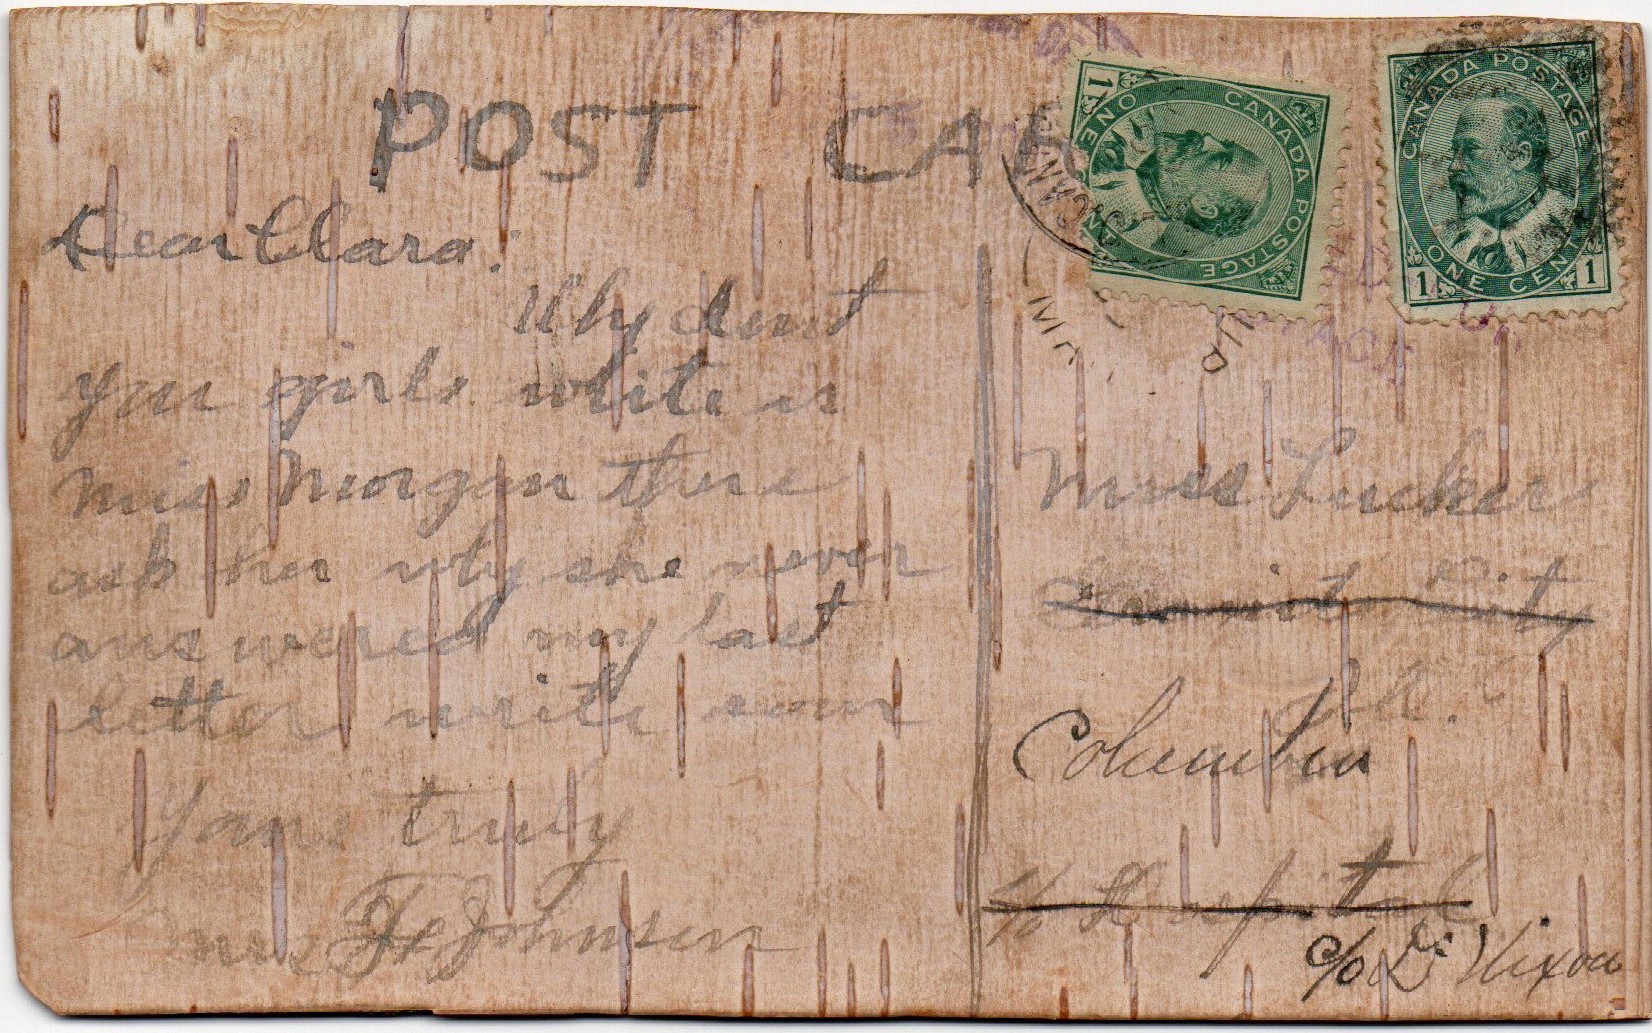 POST CAR
Dear Clara:
Why dont
you girls write is
Miss Morgan there
ask her why she never
answered my last
letter write soon
Yours truly
Mrs F Johnson
CANADA POSTAGE
ONE CENT
1
CANADA POSTAGE
ONE CENT
1 1
Miss Tucker
City
Columbia
c/o Hospital
c/o Dr Nixon